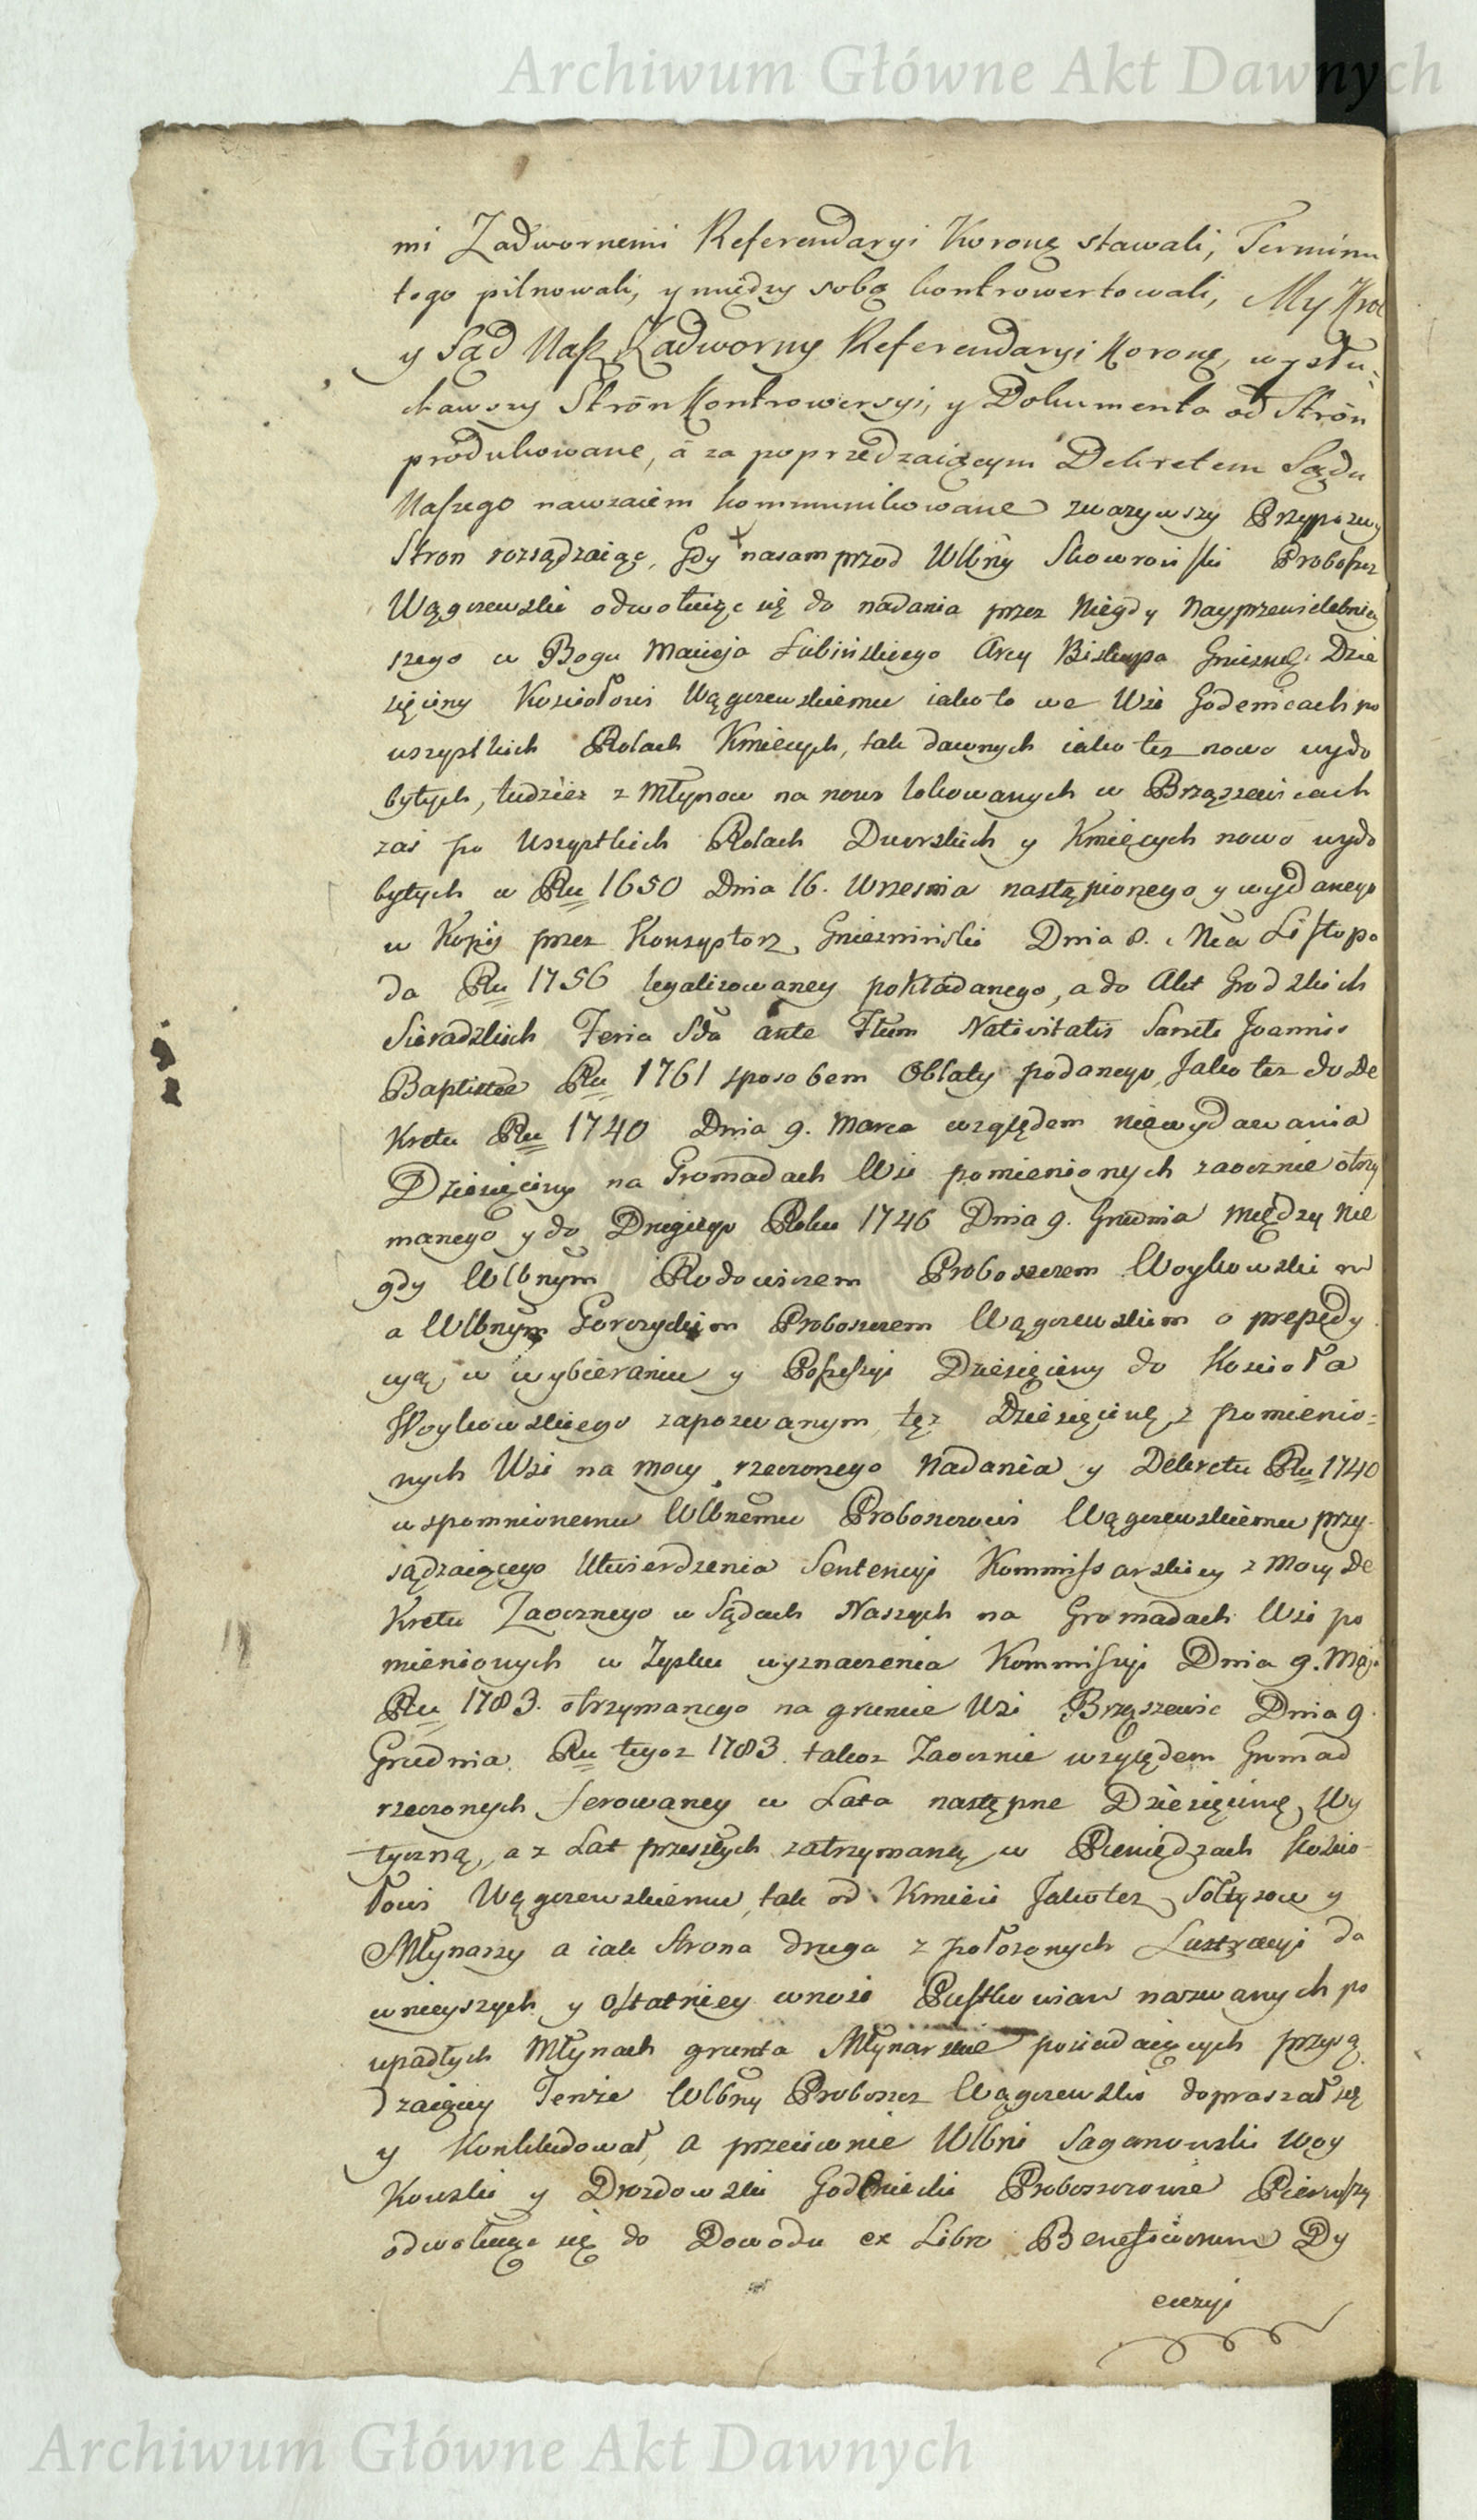 Archiwum Główne Akt Dawnych
mi Zadwornemi Referendaryi Koronę stawali, Terminu
tego pilnowali, y między sobą kontrowertowali, My Krol
y Sąd Nasz Zadworny Referendaryi Koronę, wysłu-
chawszy Strón Kontrowersyi, y Dokumenta od Strón
produkowane, á za poprzedzaiącym Dekretem Sądu
Naszego nawzaiem kommunikowane zwazywszy Przypozwy
Stron rozsądzaiąc, Gdy nasamprzod Wlbny Skowroński Proboszcz
Wągczewski odwołuiąc się do nadania przez Niegdy Nayprzewielebniey
szego w Bogu Macieja Łubińskiego Arcy Biskupa Gnieznę. Dzie
sięciny Kościołowi Wągczewskiemu iako to we Wsi Godenicach po
wszystkich Rolach Kmiecych, tak dawnych iako tez nowo wydo
bytych, tudziez z Młynow na nowo lokowanych w Brząszewicach
zaś po wszystkich Rolach Dworskich y Kmięcych nowo wydo
bytych w Ru 1650 Dnia 16. Wrzesnia nastąpionego y wydanego
w Kopij przez Konsystorz Gniezniński Dnia 8. Mca Listopa
da Ru 1756 legalizowaney pokładanego, a do Akt Grodzkich
Sieradzkich Feria 2da ante Ftum Nativitatis Sancti Joannis
Baptistae Ru 1761 sposobem Oblaty podanego, Jako tez do De
kretu Ru 1740 Dnia 9. Marca względem niewydawania
Dziesięciny na Gromadach Wsi pomienionych zaocznie otrzy
manego y do Drugiego Roku 1746 Dnia 9. Grudnia między Nie
gdy Wlbnym Rudowiczem Proboszczem Woykowskim
a Wlbnym Gorczyckim Proboszczem Wągczewskim o prepedy
cyą w wybieraniu y Possessyi Dziesięciny do Kościoła
Woykowskiego zapozwanym, tęz Dziesięcinę z pomienio=
nych Wsi na mocy rzeczonego Nadania y Dekretu Ru 1740
wspomnionemu Wlbnemu Proboszczowi Wągczewskiemu przy-
sądzaiącego Utwierdzenia Sentencyi Kommissarskiey z Mocy De
kretu Zaocznego w Sądach Naszych na Gromadach Wsi po
mienionych w Zysku wyznaczenia Kommissyi Dnia 9. Maja
Ru 1783. otrzymanego na gruncie Wsi Brząszewic Dnia 9.
Grudnia Ru tegoz 1783. takoz Zaocznie względem Gromad
rzeczonych ferowaney w Lata następne Dziesięcinę Wy
tyczną, a z Lat przeszłych zatrzymaną w Pieniędzach Kościo-
łowi Wągczewskiemu, tak od Kmieci Jako tez Sołtysow y
Młynarzy a iak Strona druga z połozonych Lustracyi da
wnieyszych y ostatniey wnosi Pustkowian nazwanych po
upadłych Młynach grunta Młynarskie posiadaiących przysą
dzaiącey Tenze Wlbny Proboszcz Wągczewski dopraszał się
y Konkludował, a przeciwnie Wlbni Saganowski Woy
kowski y Drozdowski Godenicki Proboszczowie Pierwszy
odwołuiąc się do Dowodu ex Libro Beneficiorum Dy
ecezyi
Archiwum Główne Akt Dawnych